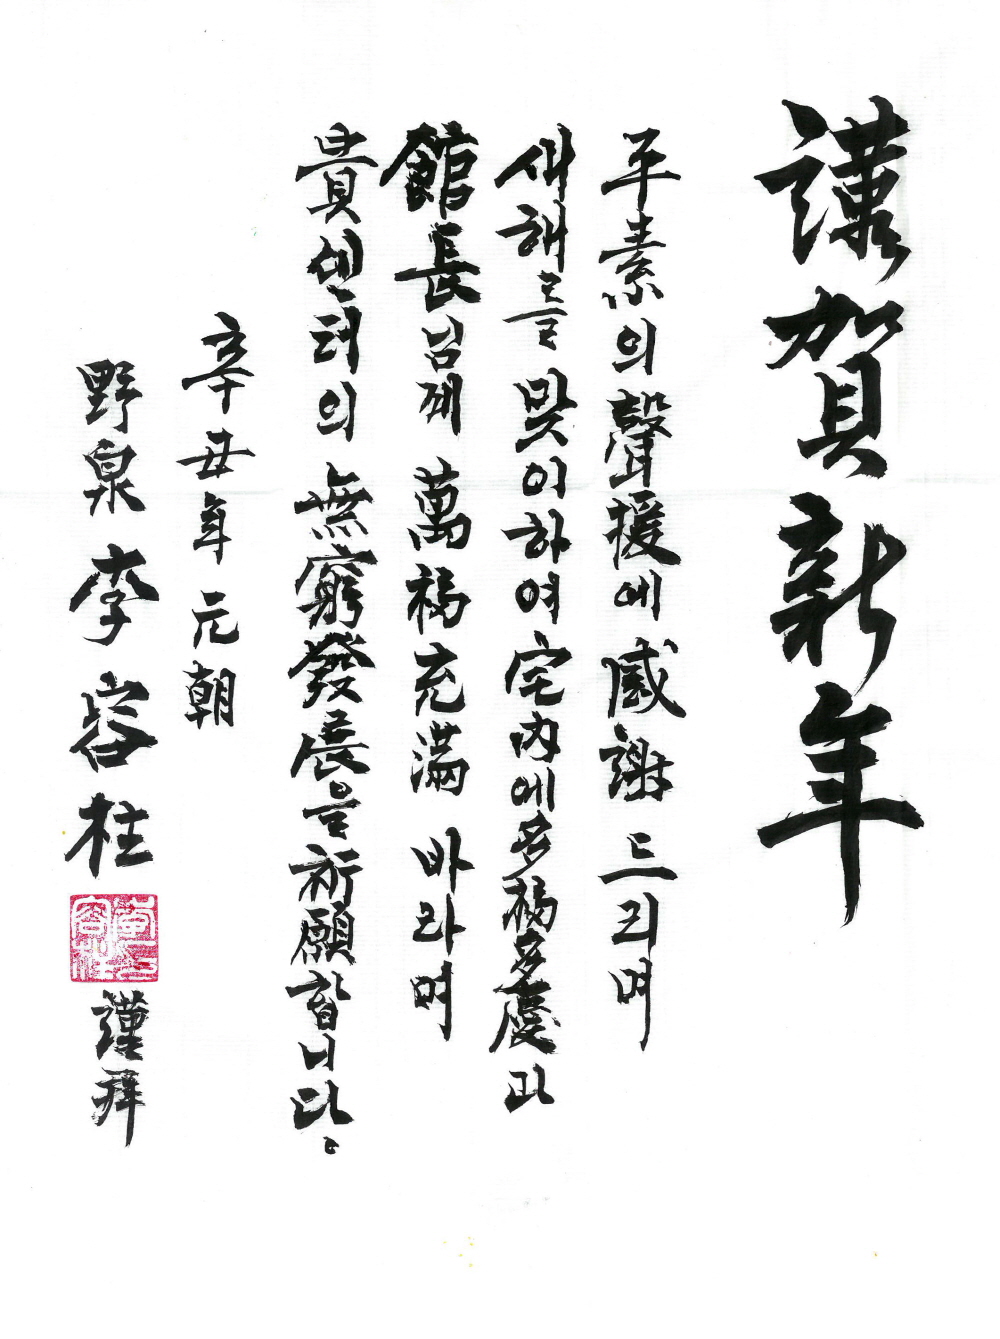 謹賀新年
平素의 聲援에 感謝 드리며
새해를 맞이하여 宅內에 多福多慶과
館長님께 萬福充滿 바라며
貴센터의 無窮發展을 祈願합니다.
辛丑年 元朝
野泉 李容柱
謹拜